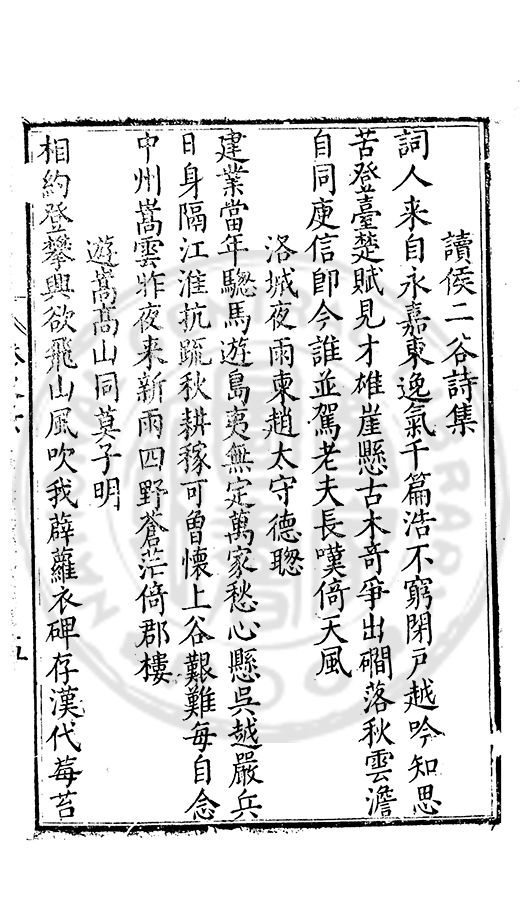 讀侯二谷詩集
詞人来自永嘉東逸氣千篇浩不窮閉戸越吟知思
苦登臺楚賦見才雄崖懸古木竒爭出磵落秋雲澹
自同庾信即今誰並駕老夫長嘆倚天風
洛城夜雨柬趙太守德聦
建業當年驄馬遊島夷無定萬家愁心懸吳越嚴兵
日身隔江淮抗疏秋耕稼可曽懷上谷艱難每自念
中州嵩雲昨夜来新雨四野蒼茫倚郡樓
遊嵩髙山同莫子明
相約登攀興欲飛山風吹我薜蘿衣碑存漢代莓苔
五